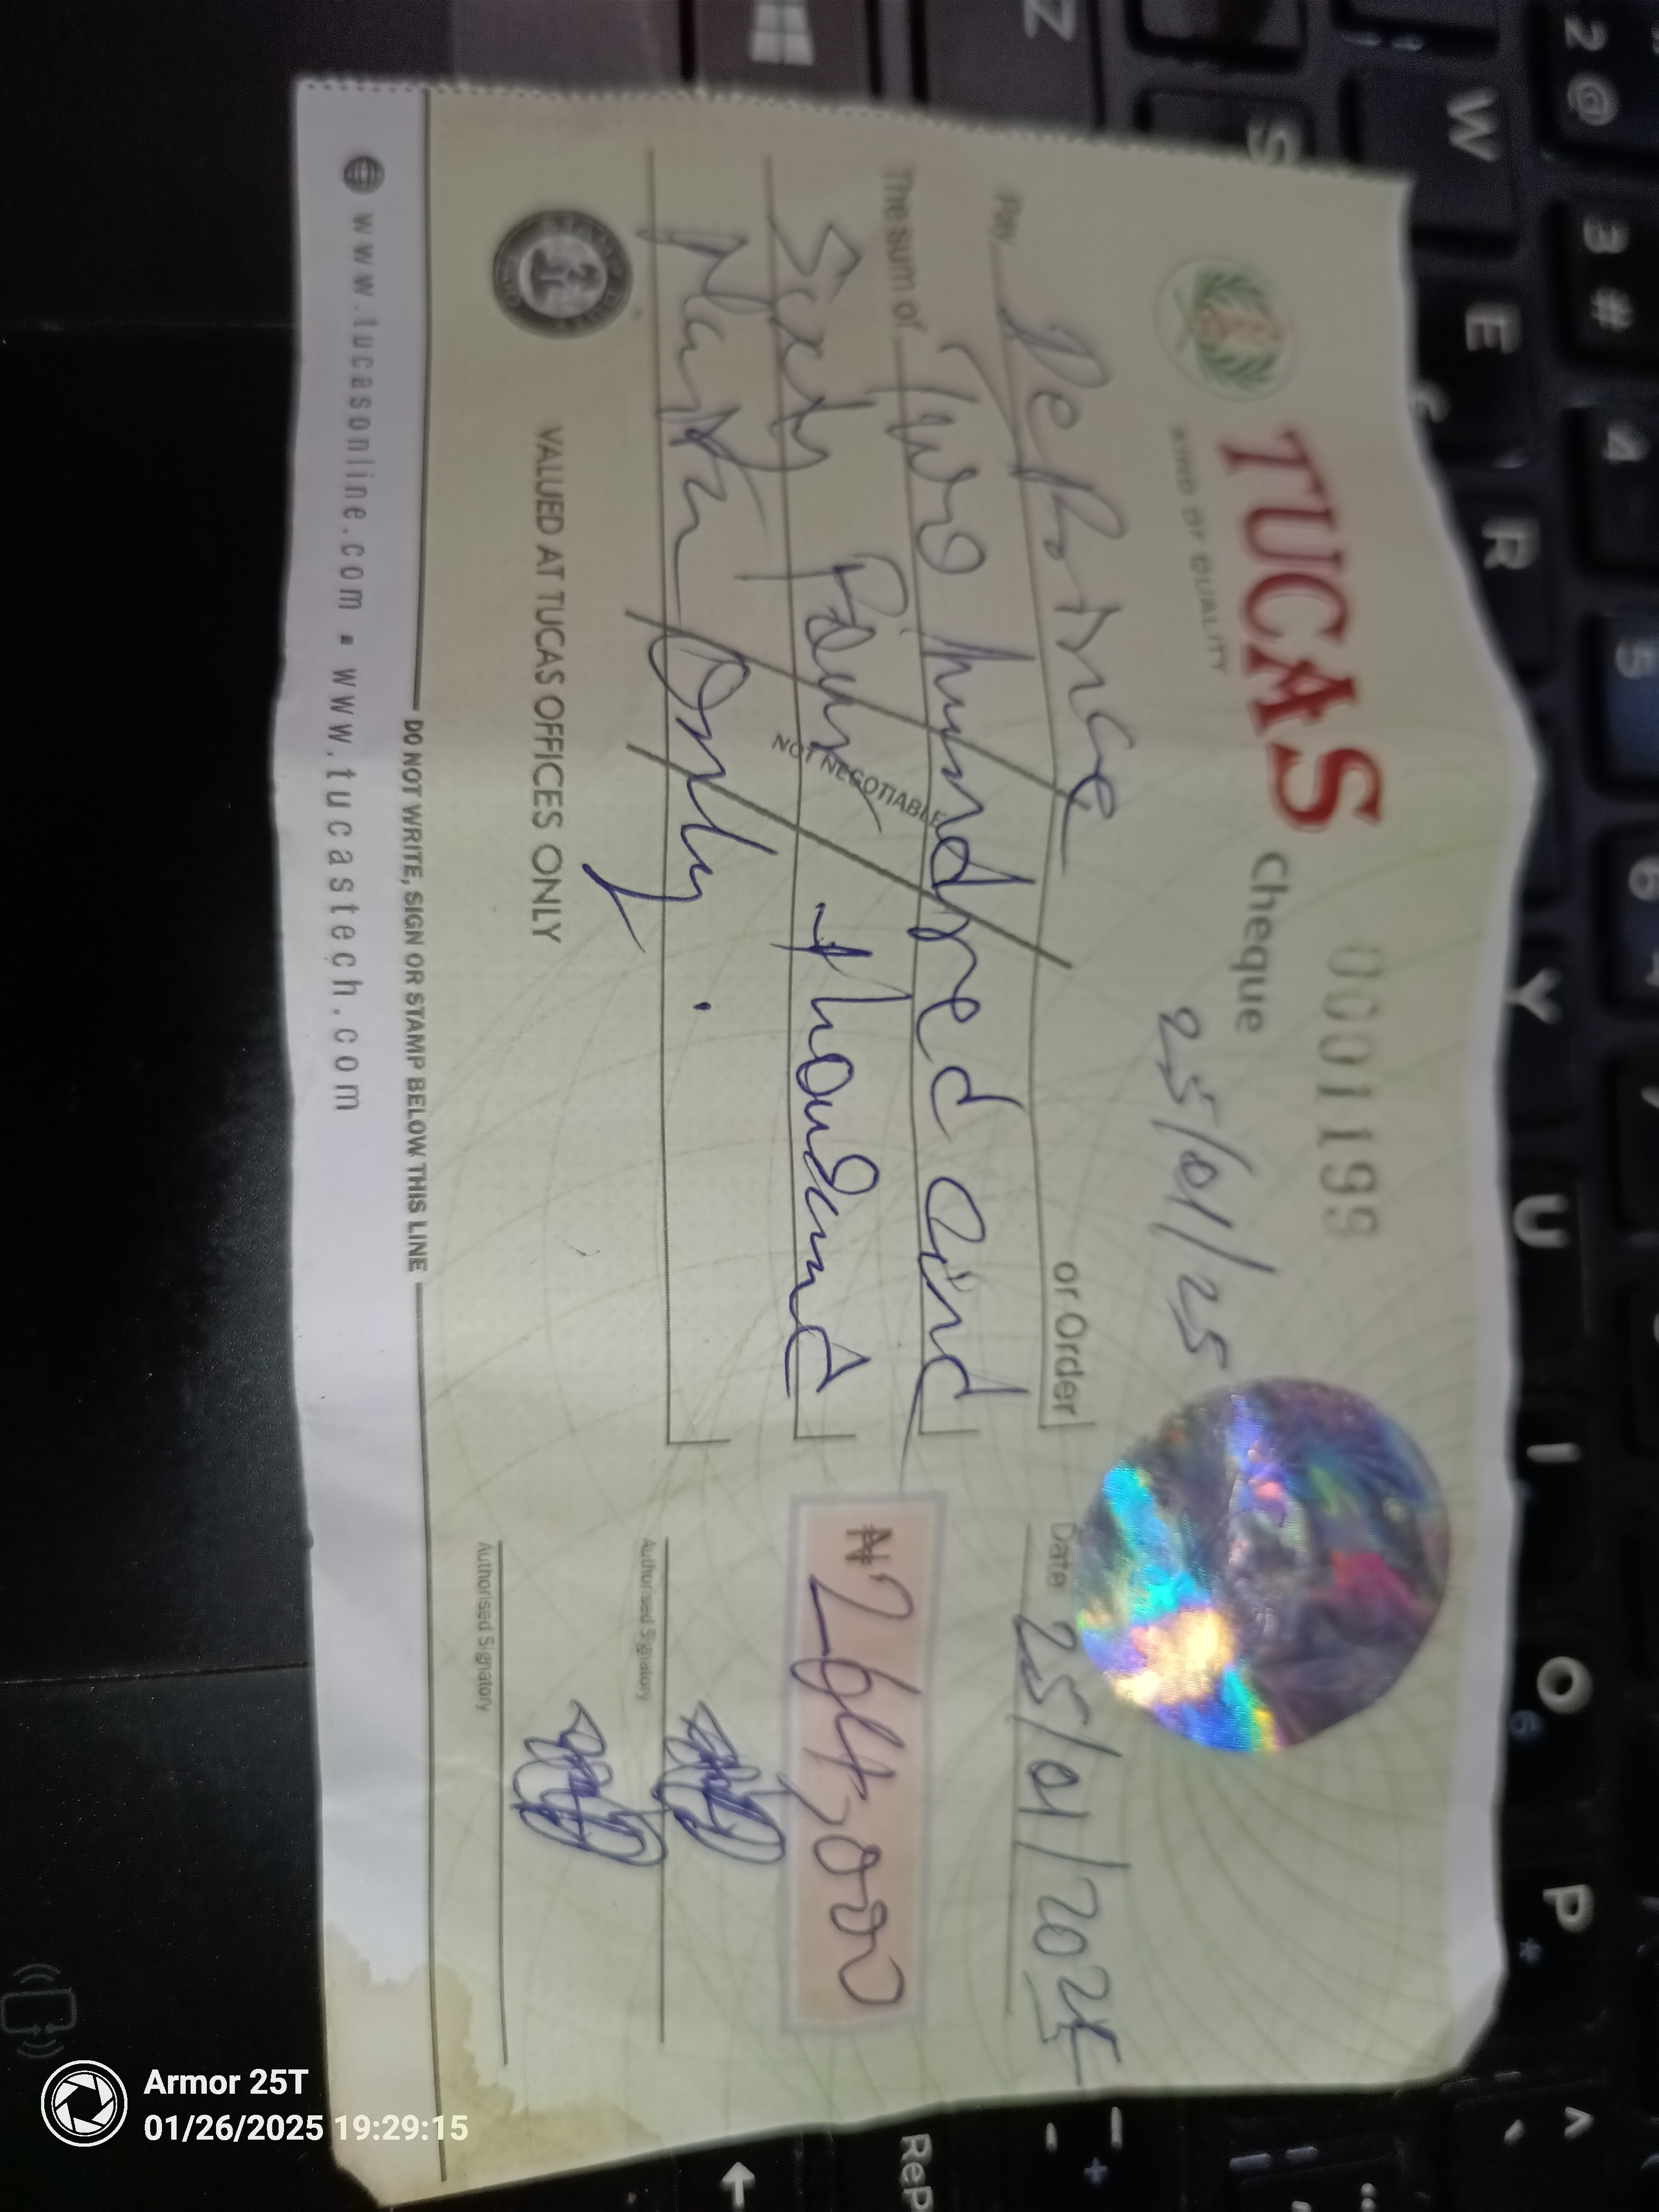 0001199
TUCAS Cheque
KIND OF QUALITY
25/01/25
Pay Defonice or Order
Date 25/01/2025
The sum of Two hundred and
Sixty Four thousand
₦ 264,000
Naira Only.
NOT NEGOTIABLE
Authorised Signatory
VALUED AT TUCAS OFFICES ONLY
Authorised Signatory
DO NOT WRITE, SIGN OR STAMP BELOW THIS LINE
www.tucasonline.com ▪ www.tucastech.com
Z
S
W
E
R
Y
U
I
O
P
2 @
3 #
4
5
6
RePág
Armor 25T
01/26/2025 19:29:15